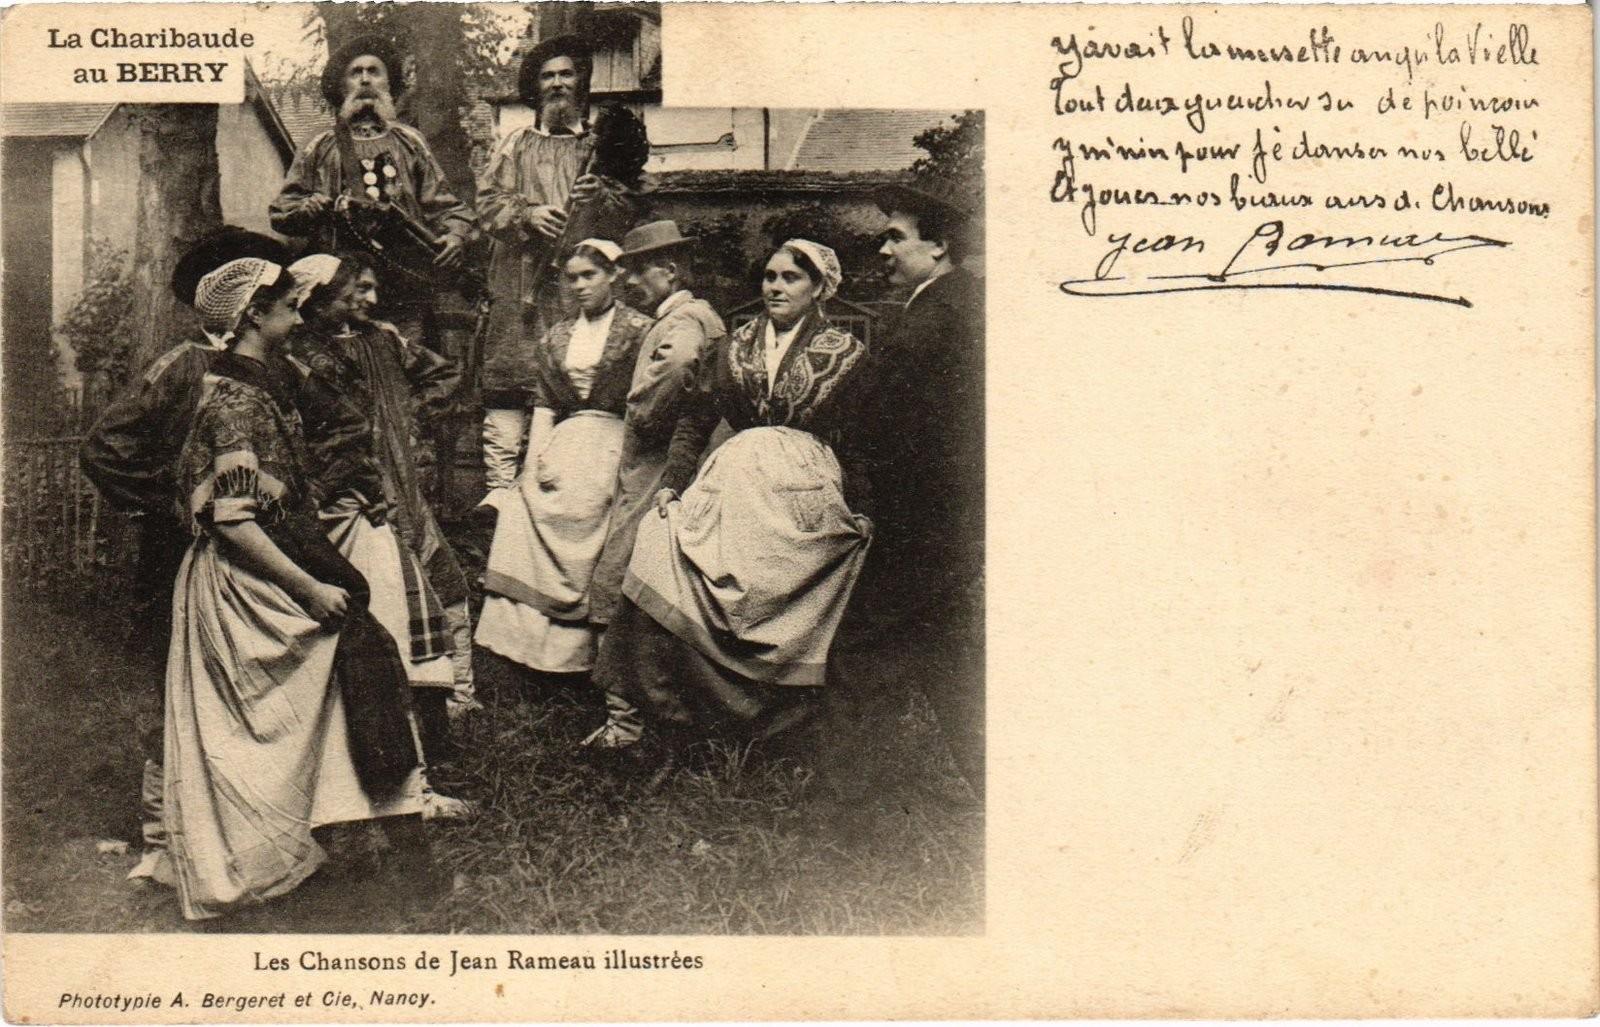 La Charibaude
au BERRY
Y avait la musette anqu' la Vielle
Tout deux gueucher su de poinçon
Y m'nin pour fé danser nos bêllé
Et jouer nos biaux airs d. Chansons
Jean Rameau
Les Chansons de Jean Rameau illustrées
Phototypie A. Bergeret et Cie, Nancy.